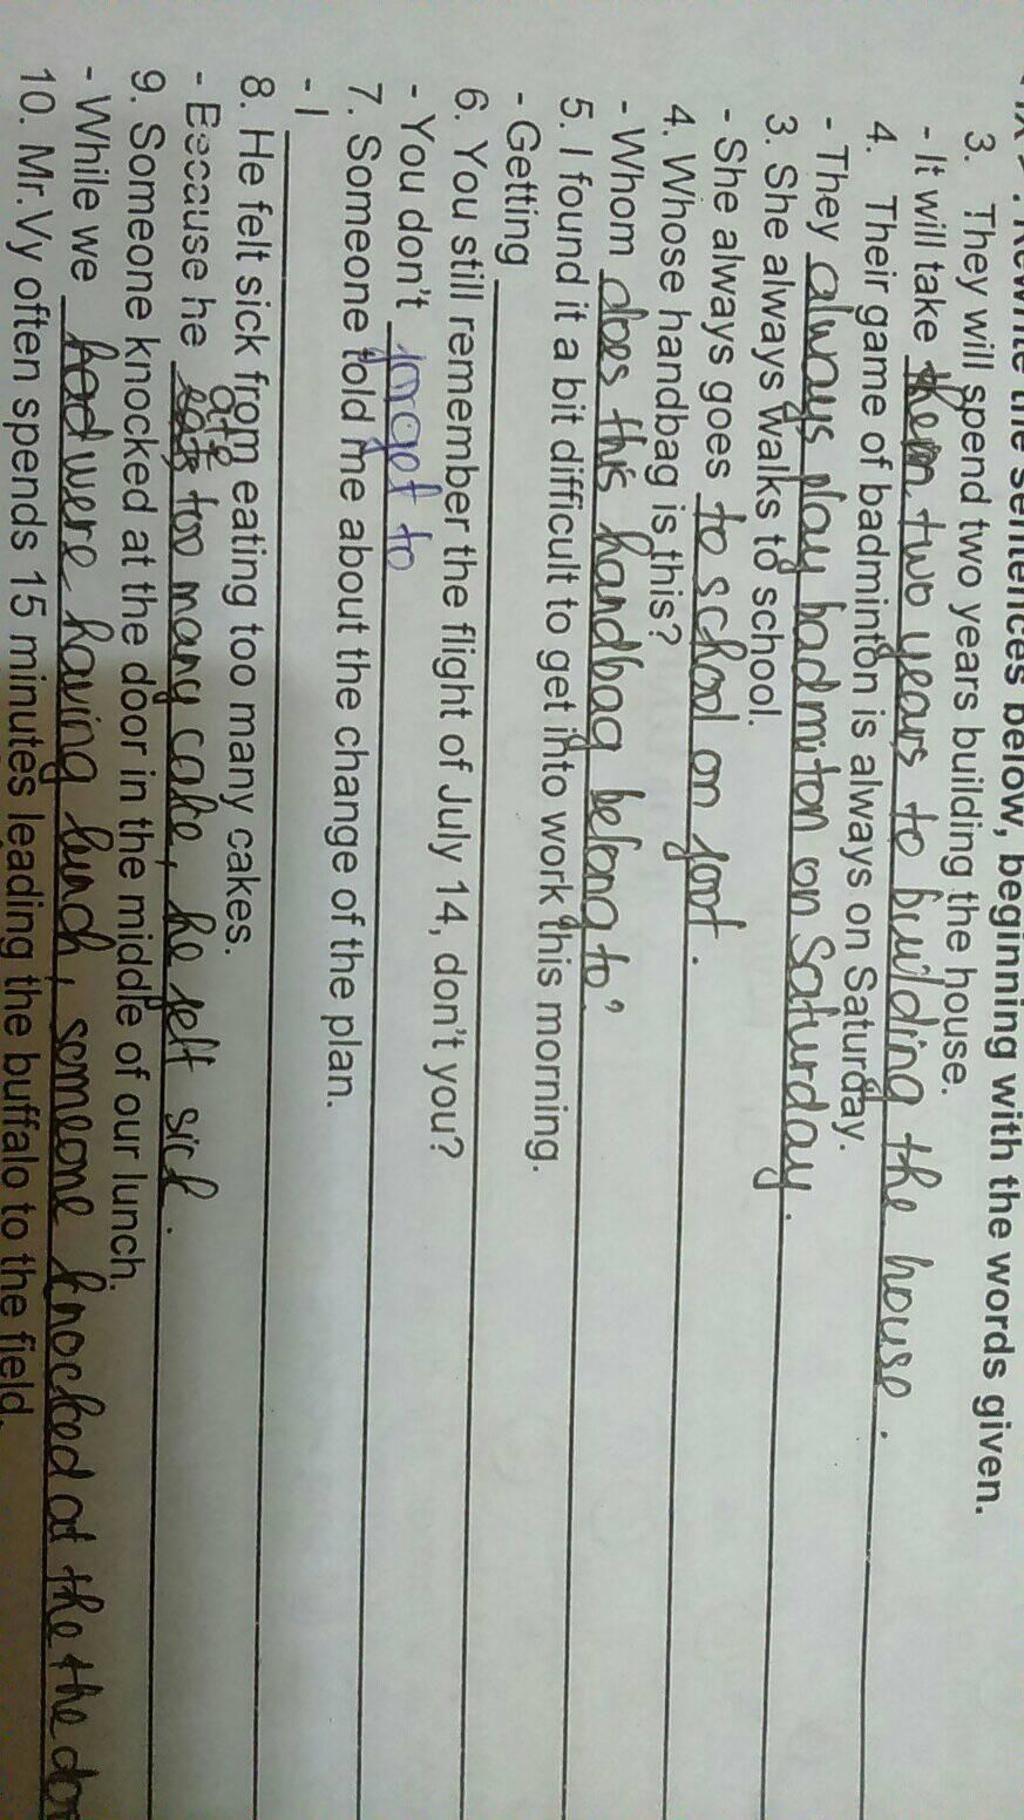 . Rewrite the sentences below, beginning with the words given.
3. They will spend two years building the house.
- It will take them two years to building the house.
4. Their game of badminton is always on Saturday.
- They always play badmiton on Saturday.
3. She always walks to school.
- She always goes to school on foot.
4. Whose handbag is this?
- Whom does this handbag belong to?
5. I found it a bit difficult to get into work this morning.
- Getting
6. You still remember the flight of July 14, don't you?
- You don't forget to
7. Someone told me about the change of the plan.
- I
8. He felt sick from eating too many cakes.
- Because he ate too many cake, he felt sick.
9. Someone knocked at the door in the middle of our lunch.
- While we had were having lunch, someone knocked at the the
10. Mr.Vy often spends 15 minutes leading the buffalo to the field.